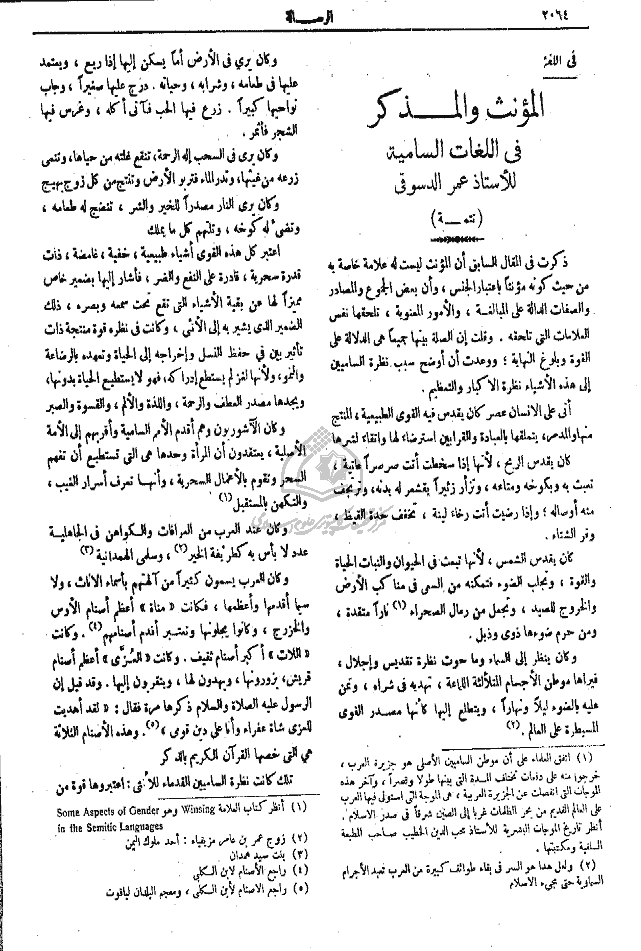 ٢٠٦٤
الرسالة
في اللغة
المؤنث والمذكر
في اللغات السامية
للأستاذ عمر الدسوقي
(تتمة)
ذكرت في المقال السابق أن المؤنث ليست له علامة خاصة به
من حيث كونه مؤنثاً باعتبار الجنس، وأن بعض الجموع والمصادر
والصفات الدالة على المبالغة، والأمور المعنوية، تلحقها نفس
العلامات التي تلحقه. وقلت إن الصلة بينها جميعاً هي الدلالة على
القوة وبلوغ النهاية؛ ووعدت أن أوضح سبب نظرة الساميين
إلى هذه الأشياء نظرة الاكبار والتعظيم.
أتى على الانسان عصر كان يقدس فيه القوى الطبيعية، المنتج
منها والمدمر، يتملقها بالعبادة والقرابين استرضاء لها واتقاء لشرها
كان يقدس الريح، لأنها إذا سخطت أتت صرصراً عاتية،
تعبث به وبكوخه ومتاعه، وتزأر زئيراً يقشعر له بدنه، وترتجف
منه أوصاله؛ وإذا رضيت أتت رخاء لينة، تخفف حدة القيظ،
وقر الشتاء.
كان يقدس الشمس، لأنها تبعث في الحيوان والنبات الحياة
والقوة، وتجلب الضوء فتمكنه من السعى في مناكب الأرض
والخروج للصيد، وتجعل من رمال الصحراء (١) ناراً متقدة،
ومن حرم ضوءها ذوى وذبل.
وكان ينظر إلى السماء وما حوت نظرة تقديس وإجلال،
فيراها موطن الأجسام المتلألئة اللامعة، تهديه في سراه، وتمن
عليه بالضوء ليلاً ونهاراً، ويتطلع إليها كأنها مصدر القوى
المسيطرة على العالم. (٢)
(١) اتفق العلماء على أن موطن الساميين الأصلي هو جزيرة العرب،
خرجوا منه على دفعات تختلف المدة التي بينها طولا وقصراً، وآخر هذه
الموجات التي انفصلت عن الجزيرة العربية، هي الموجة التي استولى فيها العرب
على العالم القديم من بحر الظلمات غربا إلى الصين شرقاً في صدر الاسلام.
أنظر تاريخ الموجات البشرية للأستاذ محب الدين الخطيب صاحب المطبعة
السلفية ومكتبتها.
(٢) ولعل هذا هو السر في بقاء طوائف كبيرة من العرب تعبد الأجرام
السماوية حتى مجيء الاسلام
وكان يرى في الأرض أماً يسكن إليها إذا ريع، ويعتمد
عليها في طعامه، وشرابه، وحياته. درج عليها صغيراً، وجاب
نواحيها كبيراً. زرع فيها الحب فآتى أكله، وغرس فيها
الشجر فأثمر.
وكان يرى في السحب إله الرحمة، تنقع غلته من حياها، وتنمى
زرعه من غيثها، وتدر الماء فتربو الأرض وتنتج من كل زوج بهيج
وكان يرى النار مصدراً للخير والشر، تنضج له طعامه،
وتضىء له كوخه، وتلتهم كل ما يملك
اعتبر كل هذه القوى أشياء طبيعية، خفية، غامضة، ذات
قدرة سحرية، قادرة على النفع والضر، فأشار إليها بضمير خاص
مميزاً لها عن بقية الأشياء التي تقع تحت سمعه وبصره، ذلك
الضمير الذي يشير به إلى الأنثى، وكانت في نظره قوة منتجة ذات
تأثير بين في حفظ النسل وإخراجه إلى الحياة وتعهده بالرضاعة
والنمو، ولأنها لغز لم يستطع إدراكه، فهو لا يستطيع الحياة بدونها،
ويجدها مصدر العطف والرحمة، واللذة والألم، والقسوة والصبر
وكان الآشوريون وهم أقدم الأمم السامية وأقربهم إلى الأمة
الأصلية، يعتقدون أن المرأة وحدها هي التي تستطيع أن تفهم
السحر وتقوم بالأعمال السحرية، وأنها تعرف أسرار الغيب،
والتكهن بالمستقبل (١)
وكان عند العرب من العرافات والكواهن في الجاهلية
عدد لا بأس به كطريفة الخير (٢)، وسلمى الهمدانية (٣)
وكان العرب يسمون كثيراً من آلهتهم بأسماء الاناث، ولا
سيما أقدمها وأعظمها، فكانت «مناة» أعظم أصنام الأوس
والخزرج، وكانوا يجلونها وتعتبر أقدم أصنامهم (٤). وكانت
«اللات» أكبر أصنام ثقيف. وكانت «العُزَّى» أعظم أصنام
قريش، يزورونها، ويهدون لها، ويتقربون إليها. وقد قيل إن
الرسول عليه الصلاة والسلام ذكرها مرة فقال: «لقد أهديت
للعزى شاة عفراء وأنا على دين قومى» (٥). وهذه الأصنام الثلاثة
هي التي خصها القرآن الكريم بالذكر
تلك كانت نظرة الساميين القدماء للأنثى: اعتبروها قوة من
(١) أنظر كتاب العلامة Winsing وهو Some Aspects of Gender
in the Semitic Languages
(٢) زوج عمر بن عامر مزيقياء: أحد ملوك اليمن
(٣) بنت سيد همدان
(٤) راجع الأصنام لابن الكلبى
(٥) راجع الاصنام لأبن الكلبى، ومعجم البلدان لياقوت